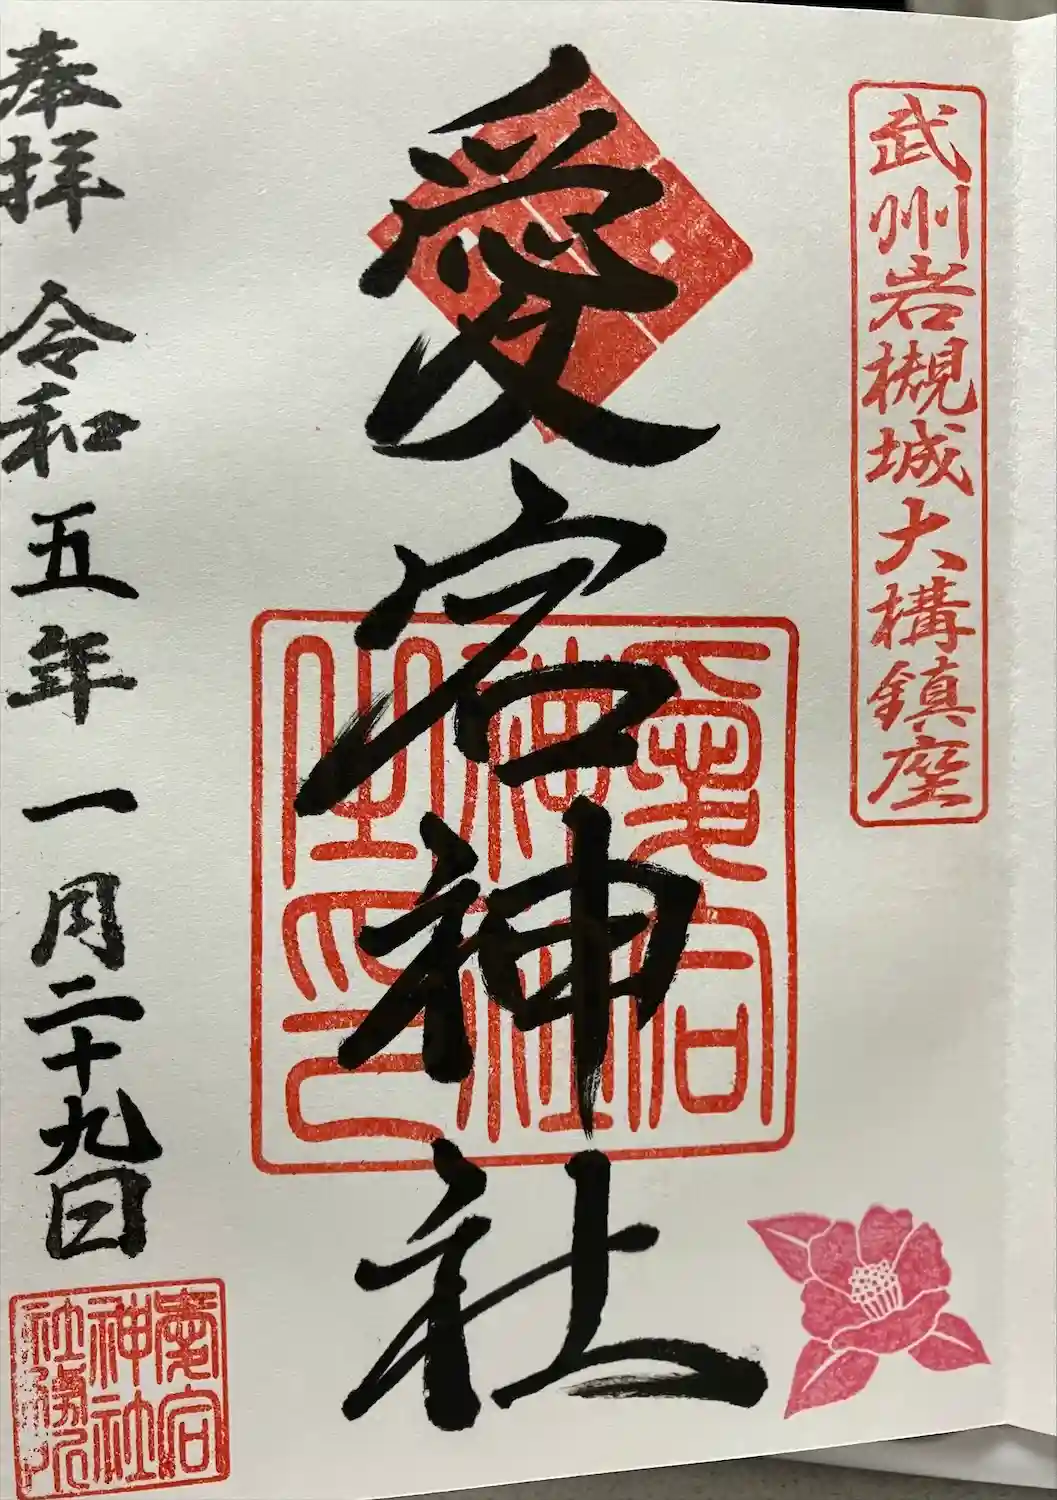 武州岩槻城大構鎮座
愛宕神社
愛宕
神社
之印
奉拝 令和五年一月二十九日
愛宕
神社
社務所